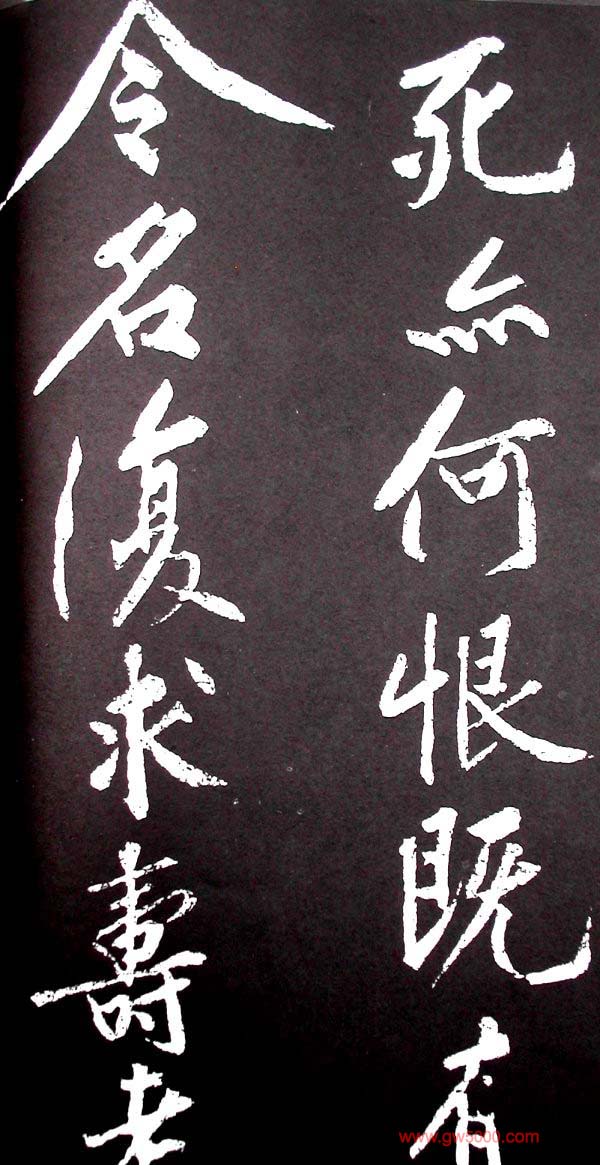 死亦何恨既有
令名復求壽考
www.gw5000.com